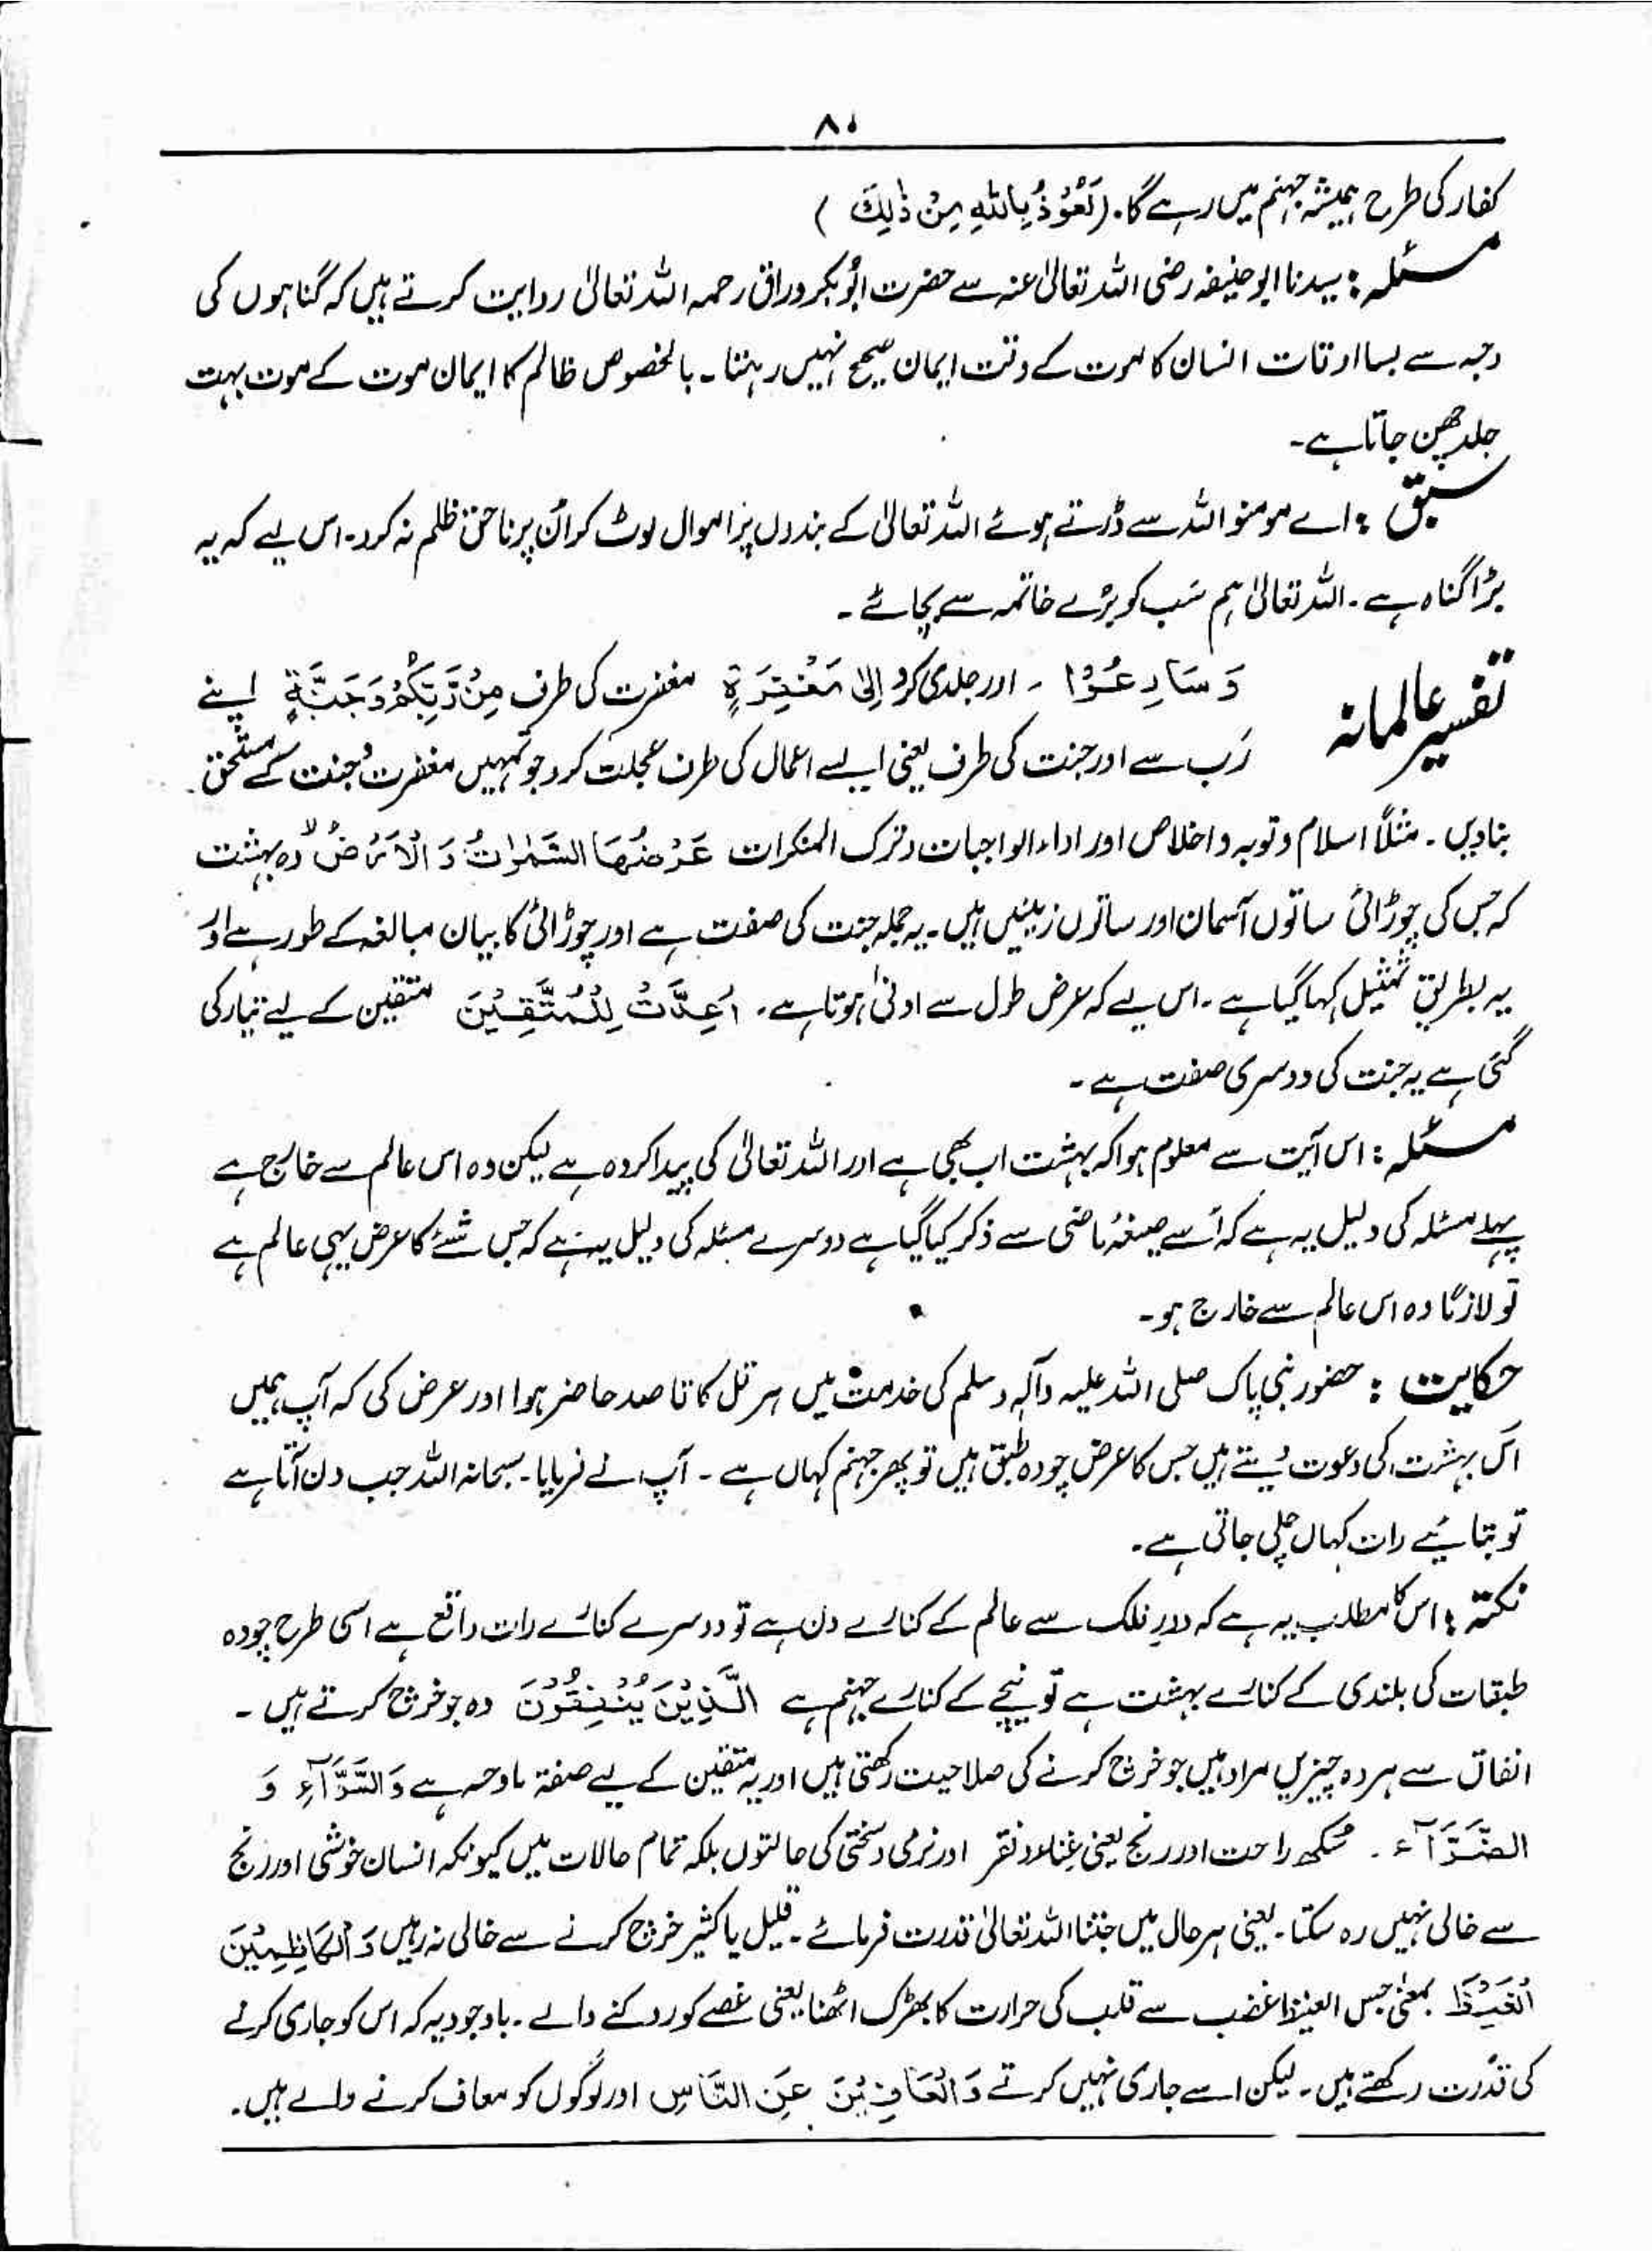 ۸۰
کفار کی طرح ہمیشہ جہنم میں رہے گا۔ (نَعُوْذُ بِاللّٰہِ مِنْ ذٰلِکَ )
مسئلہ : سیدنا ابوحنیفہ رضی اللہ تعالیٰ عنہ سے حضرت ابُوبکر وراق رحمہ اللہ تعالیٰ روایت کرتے ہیں کہ گناہوں کی
وجہ سے بسا اوقات انسان کا موت کے وقت ایمان صحیح نہیں رہتا ۔ بالخصوص ظالم کا ایمان موت کے موت بہت
جلد چھن جاتا ہے ۔
سبق : اے مومنو اللہ سے ڈرتے ہوئے اللہ تعالیٰ کے بندوں پر اموال لوٹ کر اُن پر ناحق ظلم نہ کرو ۔ اس لیے کہ یہ
بڑا گناہ ہے ۔ اللہ تعالیٰ ہم سَب کو بُرے خاتمہ سے بچائے ۔
تفسیر عالمانہ وَ سَارِعُوْٓا ۔ اور جلدی کرو اِلیٰ مَغْفِرَۃٍ مغفرت کی طرف مِنْ رَّبِّکُمْ وَجَنَّۃٍ اپنے
رَب سے اور جنت کی طرف یعنی ایسے اعمال کی طرف عجلت کرو جو تمہیں مغفرت و جنت کے مستحق
بنادیں ۔ مثلاً اسلام و توبہ و اخلاص اور اداء الواجبات و ترک المنکرات عَرْضُهَا السَّمٰوٰتُ وَ الْاَرْضُ وہ بہشت
کہ جس کی چوڑائی ساتوں آسمان اور ساتوں زمینیں ہیں ۔ یہ جملہ جنت کی صفت ہے اور چوڑائی کا بیان مبالغہ کے طور سے اور
یہ بطریق تمثیل کہا گیا ہے ۔ اس لیے کہ عرض طول سے ادنیٰ ہوتا ہے ۔ اُعِدَّتْ لِلْمُتَّقِیْنَ متقین کے لیے تیار کی
گئی ہے یہ جنت کی دوسری صفت ہے ۔
مسئلہ : اس آیت سے معلوم ہوا کہ بہشت اب بھی ہے اور اللہ تعالیٰ کی پیدا کردہ ہے لیکن وہ اس عالم سے خارج ہے
پہلے مسئلہ کی دلیل یہ ہے کہ اُسے صیغۂ ماضی سے ذکر کیا گیا ہے دوسرے مسئلہ کی دلیل یہ ہے کہ جس شئے کا عرض یہی عالم ہے
تو لازمًا وہ اس عالم سے خارج ہو ۔
حکایت : حضور نبی پاک صلی اللہ علیہ وآلہٖ وسلم کی خدمت میں ہرقل کا قاصد حاضر ہوا اور عرض کی کہ آپ ہمیں
اس بہشت کی دعوت دیتے ہیں جس کا عرض چودہ طبق ہیں تو پھر جہنم کہاں ہے ۔ آپ نے فرمایا ۔ سبحانہ اللہ جب دن آتا ہے
تو بتائیے رات کہاں چلی جاتی ہے ۔
نکتہ : اس کا مطلب یہ ہے کہ دورِ فلک سے عالم کے کنارے دن ہے تو دوسرے کنارے رات واقع ہے اسی طرح چودہ
طبقات کی بلندی کے کنارے بہشت ہے تو نیچے کے کنارے جہنم ہے الَّذِیْنَ یُنْفِقُوْنَ وہ جو خرچ کرتے ہیں ۔
انفاق سے ہر وہ چیزیں مراد ہیں جو خرچ کرنے کی صلاحیت رکھتی ہیں اور یہ متقین کے لیے صفۃ مادحہ ہے وَ السَّرَّآءِ وَ
الضَّرَّآءِ ۔ سُکھ راحت اور رنج یعنی غِناء و فقر اور نرمی و سختی کی حالتوں بلکہ تمام حالات میں کیونکہ انسان خوشی اور رنج
سے خالی نہیں رہ سکتا ۔ یعنی ہر حال میں جتنا اللہ تعالیٰ قدرت فرمائے ۔ قلیل یا کثیر خرچ کرنے سے خالی نہ رہیں وَ الْکَاظِمِیْنَ
الْغَیْظَ بمعنیٰ حبس الغیظ غضب سے قلب کی حرارت کا بھڑک اٹھنا یعنی غصے کو روکنے والے ۔ باوجود یہ کہ اس کو جاری کرنے
کی قدرت رکھتے ہیں ۔ لیکن اسے جاری نہیں کرتے وَ الْعَافِیْنَ عَنِ النَّاسِ اور لوگوں کو معاف کرنے والے ہیں ۔